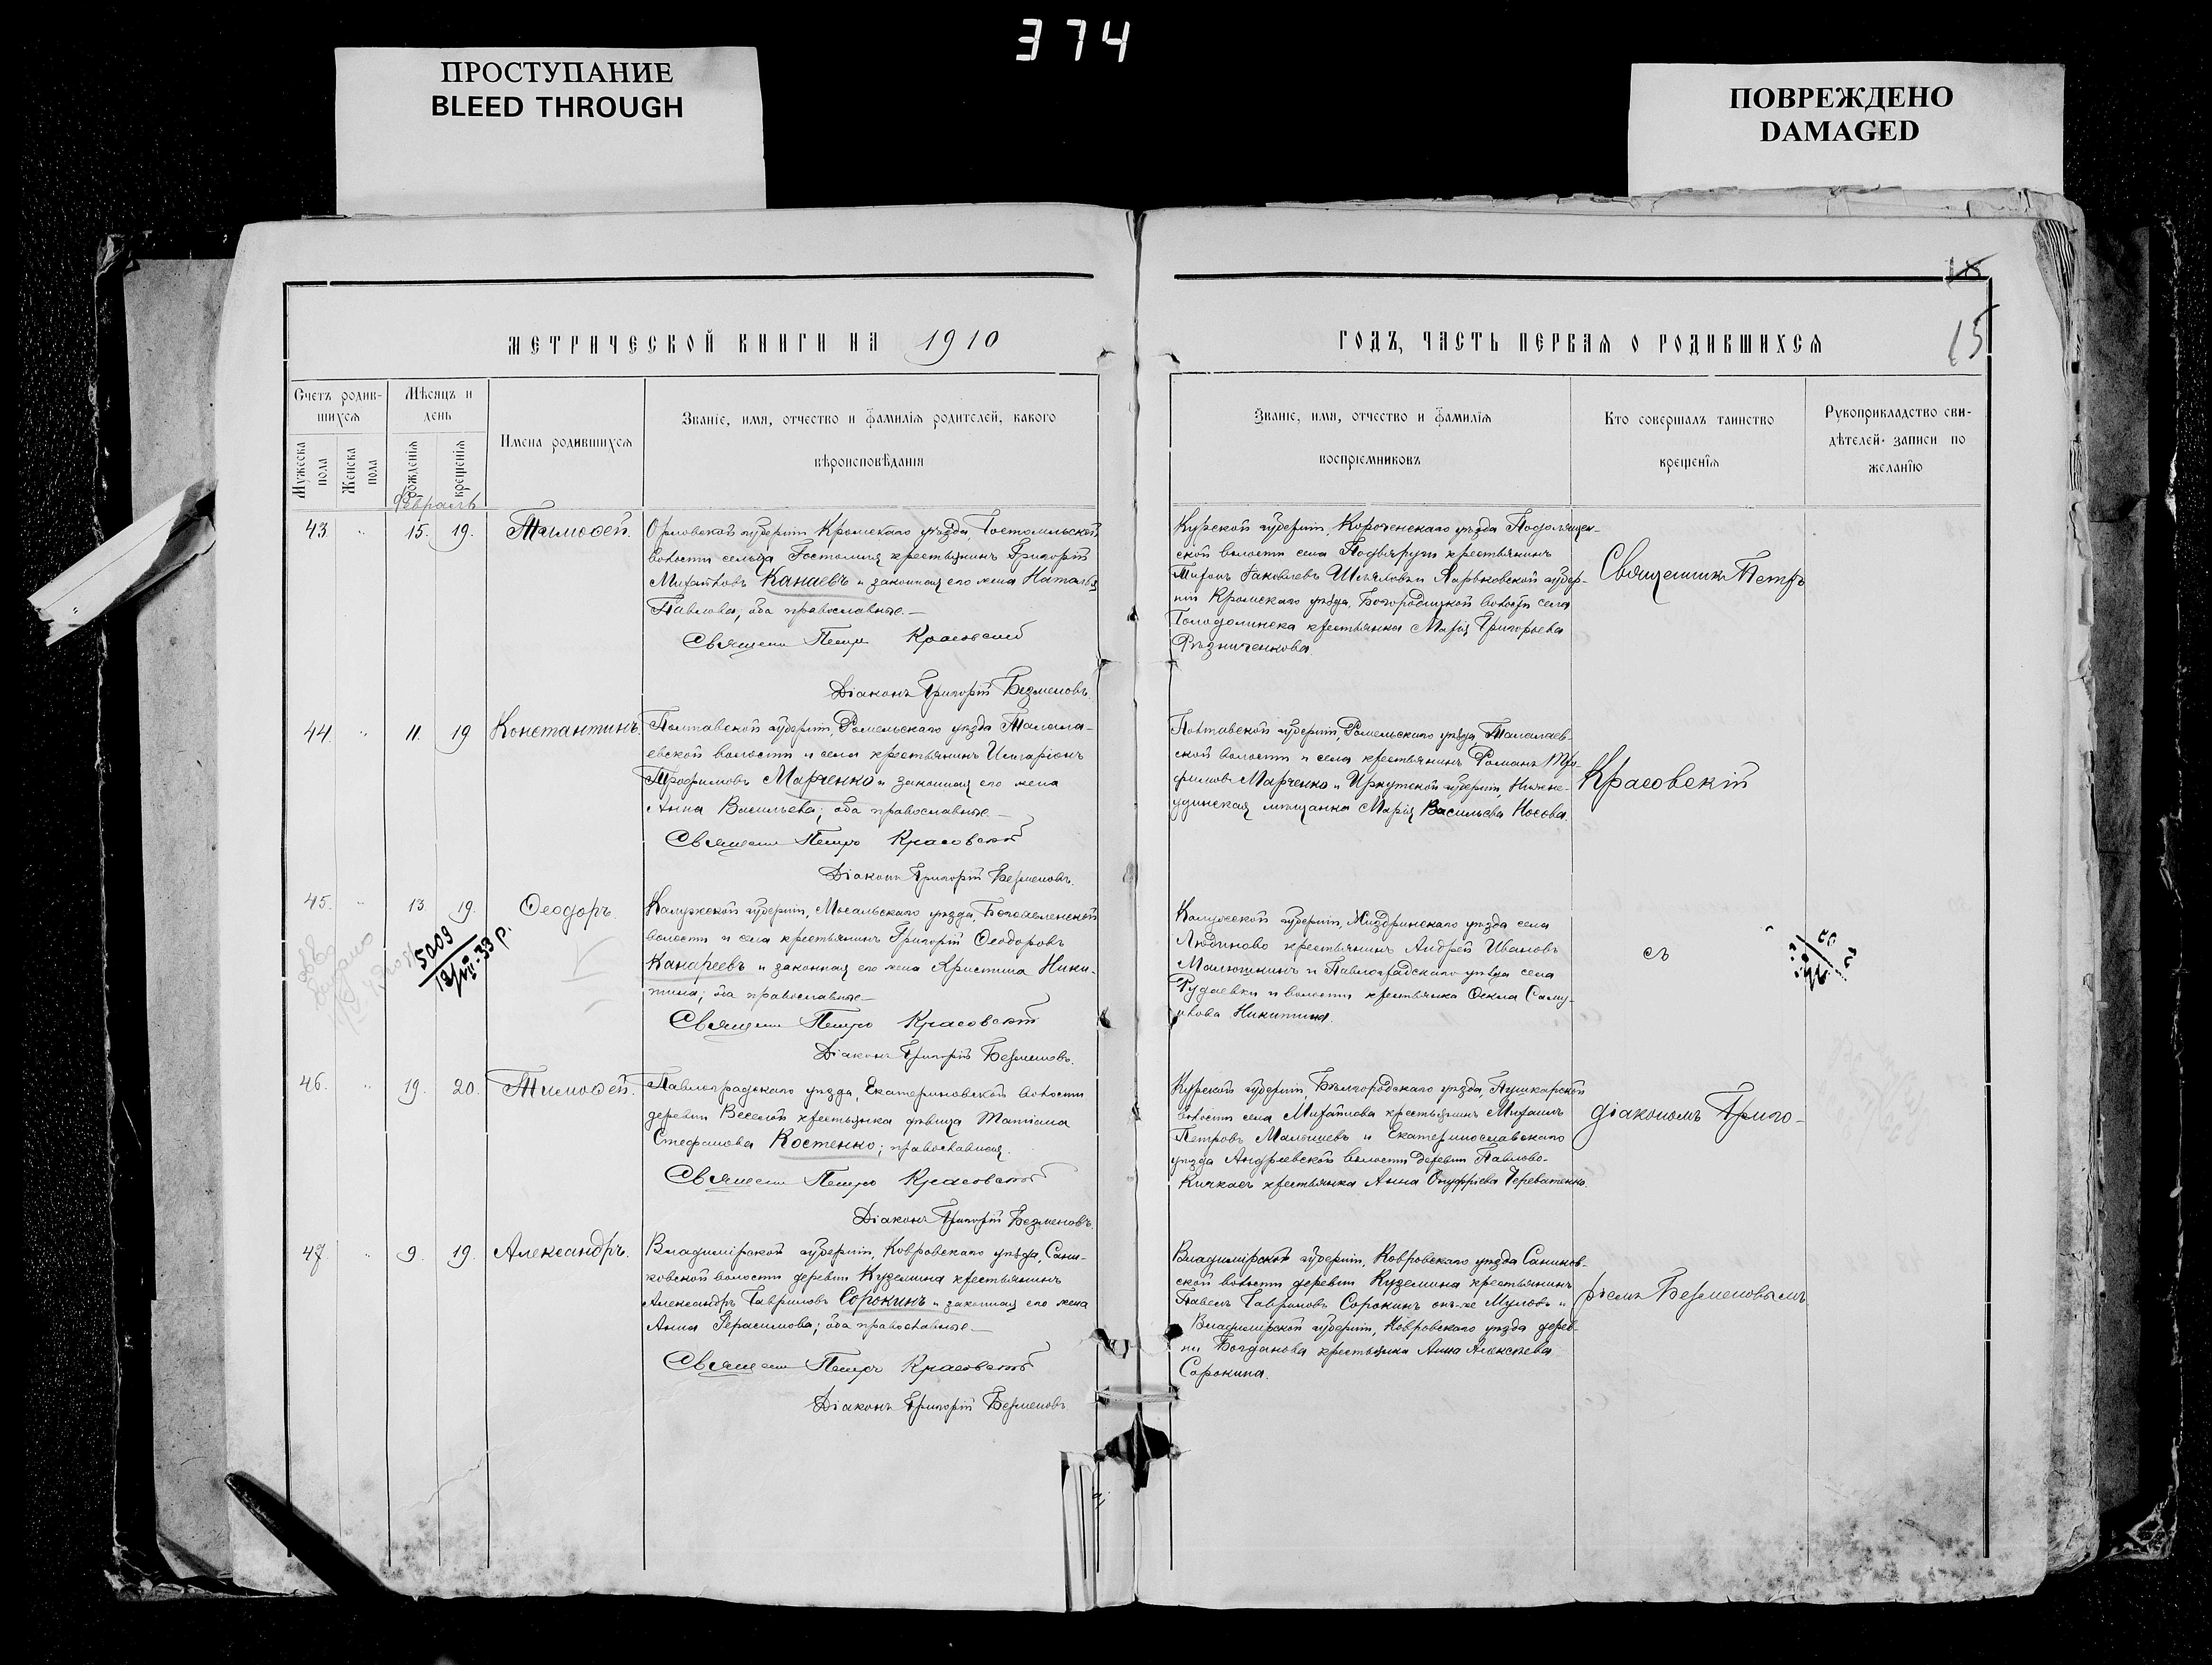 374
ПРОСТУПАНИЕ
BLEED THROUGH
ПОВРЕЖДЕНО
DAMAGED
МЕТРИЧЕСКОЙ КНИГИ НА 1910
Счетъ родив-
шихся
Мѣсяцъ и
день
Имена родившихся
Званіе, имя, отчество и фамилія родителей, какого
вѣроисповѣданія
Мужеска
пола
Женска
пола
рожденія
крещенія
Февраль
43. " 15. 19. Тимоѳей.
Орловской губерніи Кромскаго уѣзда, Гостомльской
волости сельца Гостомля крестьянинъ Григорій
Михайловъ Канаевъ и законная его жена Наталья
Павлова, оба православные.—
Священн Петръ Красовскій
Діаконъ Григорій Безменовъ.
44. " 11. 19 Константинъ.
Полтавской губерніи, Роменскаго уѣзда Талала-
евской волости и села крестьянинъ Иларіонъ
Трофимовъ Марченко и законная его жена
Анна Васильева; оба православные—
Священн Петръ Красовскій
Діаконъ Григорій Безменовъ.
45. " 13. 19. Ѳеодоръ.
5009
33 р.
Калужской губерніи, Мосальскаго уѣзда, Богоявленской
волости и села крестьянинъ Григорій Ѳеодоровъ
Канареевъ и законная его жена Христина Ники-
тина; оба православные—
Священн Петръ Красовскій
Діаконъ Григорій Безменовъ.
46. " 19. 20. Тимоѳей.
Павлоградскаго уѣзда, Екатериновской волости
деревни Веселой крестьянка дѣвица Татіана
Стефанова Костенко; православная.
Священн Петръ Красовскій
Діаконъ Григорій Безменовъ.
47. " 9. 19. Александръ.
Владимірской губерніи, Ковровскаго уѣзда, Сани-
ковской волости деревни Куземина крестьянинъ
Александръ Гавриловъ Сорокинъ и законная его жена
Анна Герасимова; оба православные—
Священн Петръ Красовскій
Діаконъ Григорій Безменовъ.
15
ГОДЪ, ЧАСТЬ ПЕРВАЯ О РОДИВШИХСЯ
Званіе, имя, отчество и фамилія
воспріемниковъ
Кто совершалъ таинство
крещенія
Рукоприкладство сви-
дѣтелей записи по
желанію
Курской губерніи, Короченскаго уѣзда
ской волости села крестьянинъ
Яковлевъ и Харьковской губер-
ніи уѣзда, Богородицкой волости села
крестьянка Марія Григорьева
Рѣзниченкова.
Священникъ Петръ
Полтавской губерніи, Роменскаго уѣзда Талалаев-
ской волости и села крестьянинъ Романъ Тро-
фимовъ Марченко и Иркутской губерніи, Нижне-
удинская мѣщанка Марія Васильева Носова.
Красовскій
Калужской губерніи, Жиздринскаго уѣзда села
Людиново крестьянинъ Андрей Ивановъ
Малюшкинъ и Павлоградскаго уѣзда села
и волости крестьянка Ѳекла Саму-
Никитина.
съ
Курской губерніи, Бѣлгородскаго уѣзда, Пушкарской
волости села крестьянинъ Михаилъ
Петровъ Малышевъ и Екатеринославскаго
уѣзда Андреевской волости деревни Павлово-
Кичкасъ крестьянка Анна Онуфріева Череватенко.
діакономъ Григо-
Владимірской губерніи, Ковровскаго уѣзда Саников-
ской волости деревни Куземина крестьянинъ
Павелъ Гавриловъ Сорокинъ онъ-же Муловъ и
Владимірской губерніи, Ковровскаго уѣзда дерев-
ни Богданова крестьянка Анна Алексѣева
Сорокина.
ріемъ Безменовымъ